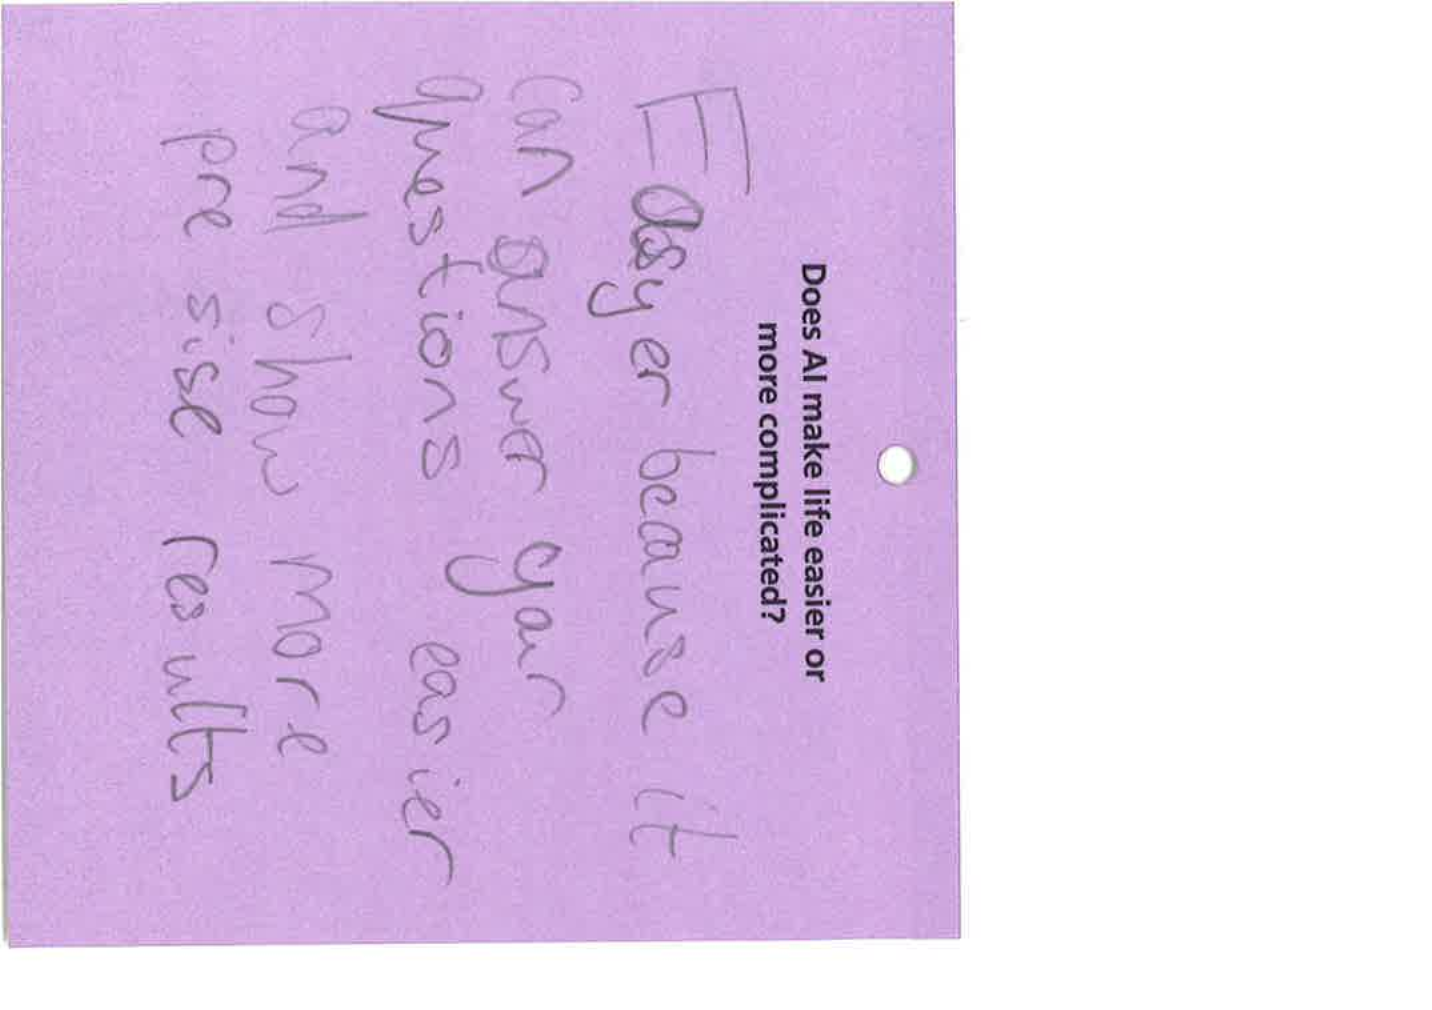 Does AI make life easier or
more complicated?
Easyer because it
can answer your
questions easier
and show more
pre sise results